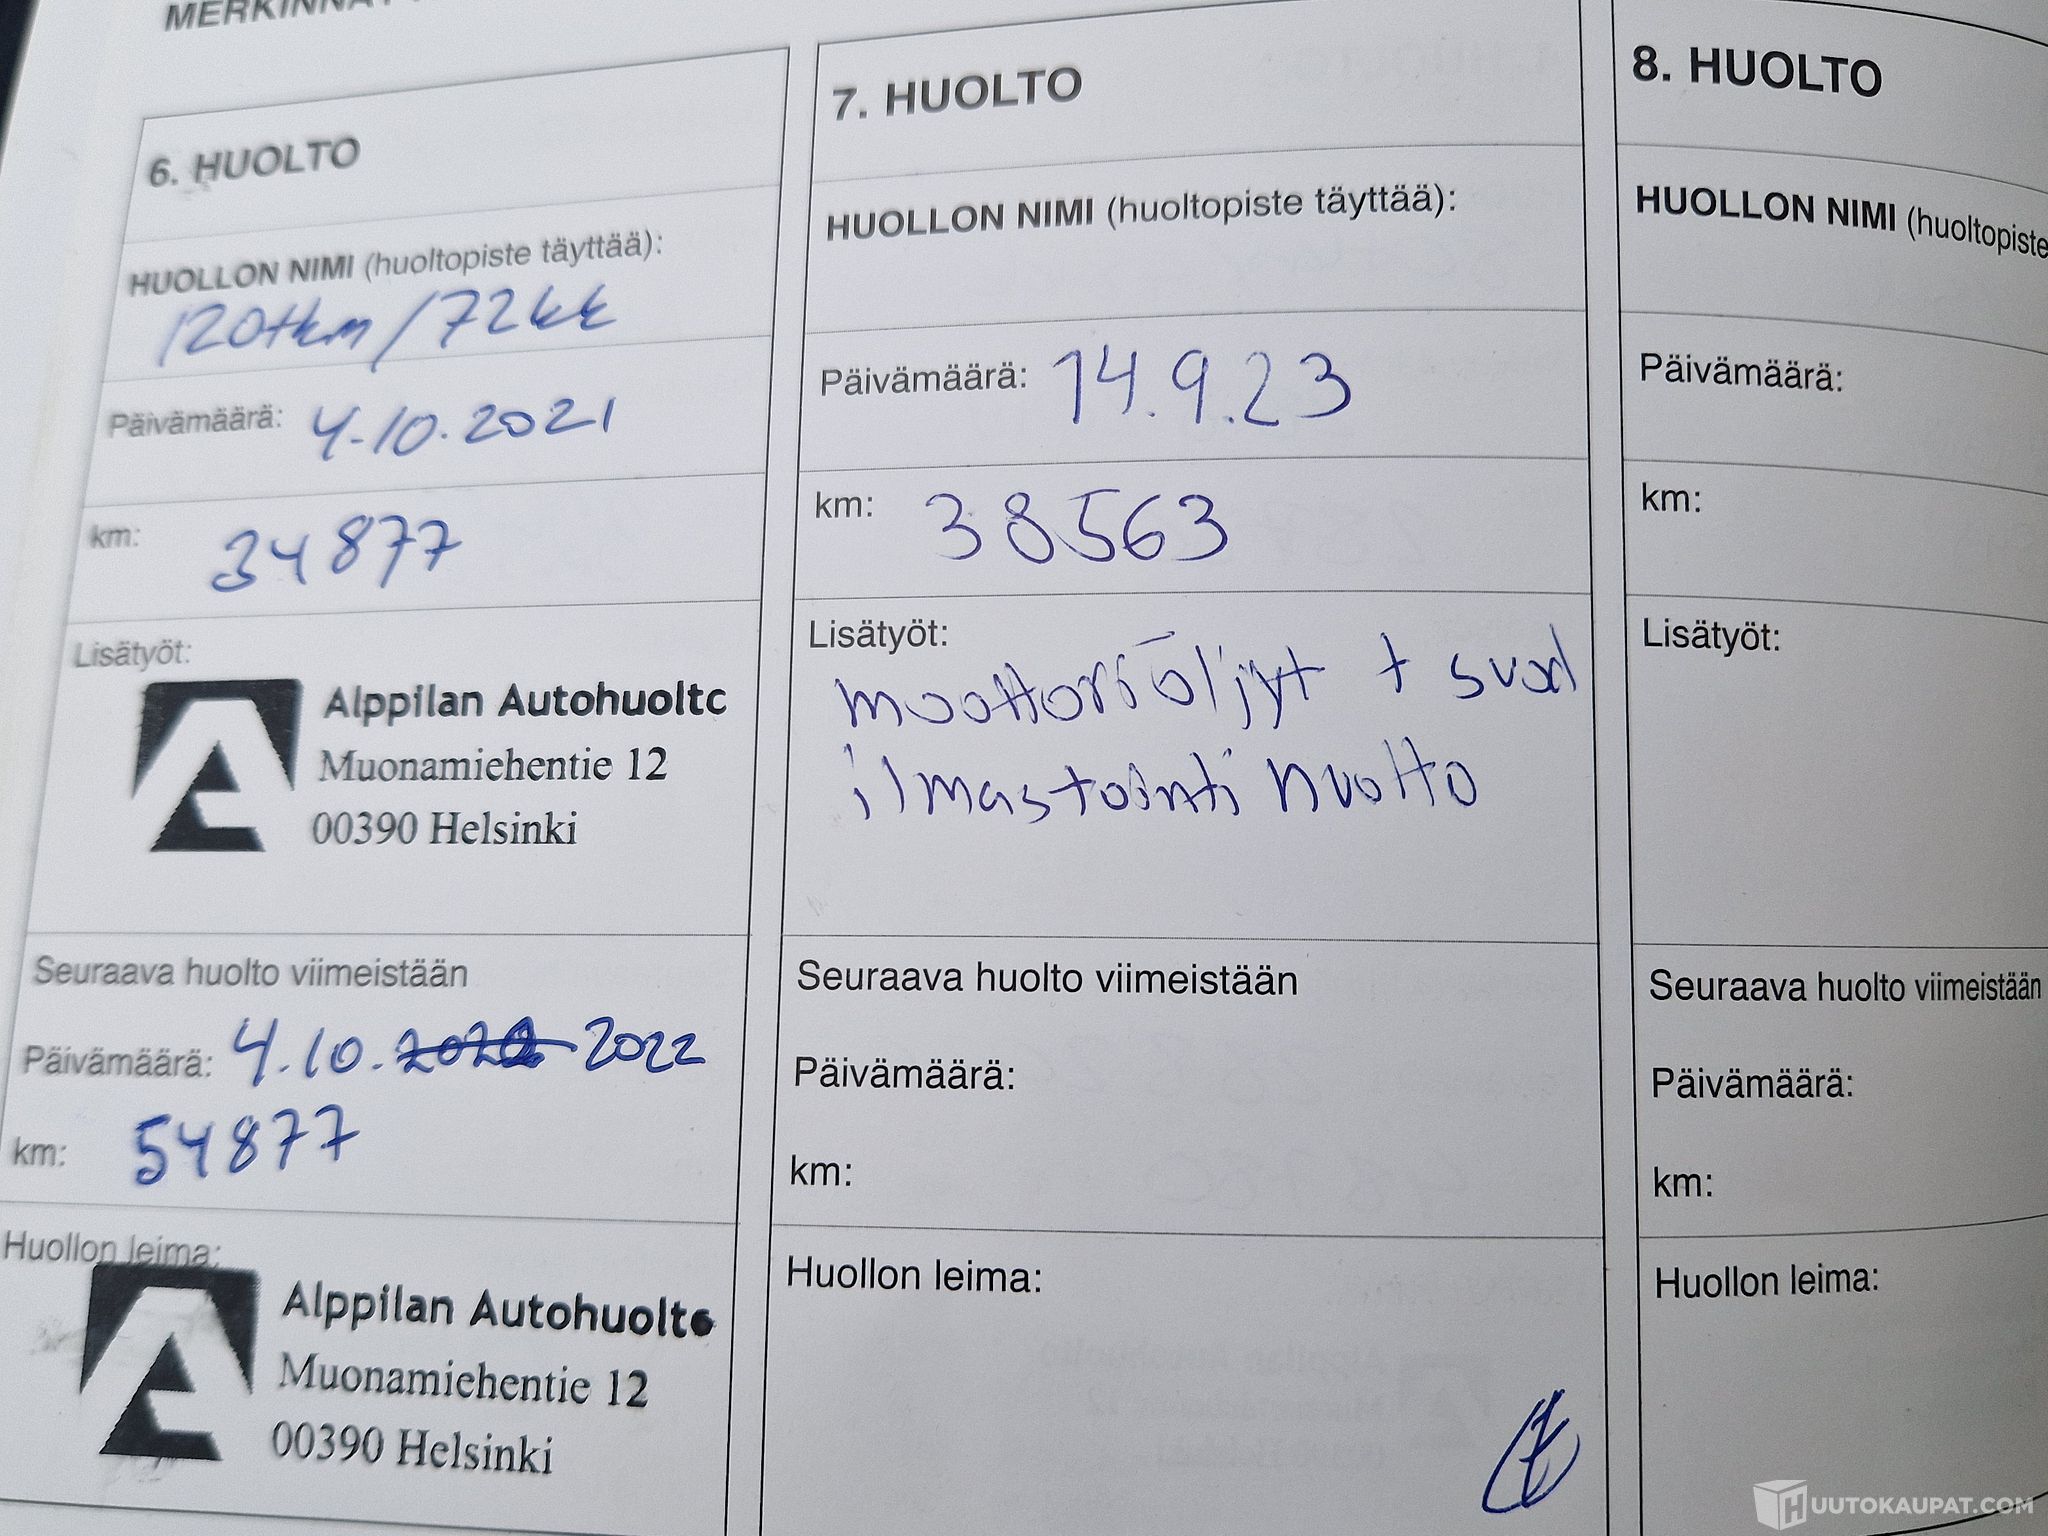 6. HUOLTO
HUOLLON NIMI (huoltopiste täyttää):
120tkm/72kk
Päivämäärä: 4.10.2021
km: 34877
Lisätyöt:
Alppilan Autohuolto
Muonamiehentie 12
00390 Helsinki
Seuraava huolto viimeistään
Päivämäärä: 4.10. 2022
km: 54877
Huollon leima:
Alppilan Autohuolto
Muonamiehentie 12
00390 Helsinki
7. HUOLTO
HUOLLON NIMI (huoltopiste täyttää):
Päivämäärä: 14.9.23
km: 38563
Lisätyöt:
moottoriöljyt + suod
ilmastointi huolto
Seuraava huolto viimeistään
Päivämäärä:
km:
Huollon leima:
8. HUOLTO
HUOLLON NIMI (huoltopiste
Päivämäärä:
km:
Lisätyöt:
Seuraava huolto viimeistään
Päivämäärä:
km:
Huollon leima:
HUUTOKAUPAT.COM